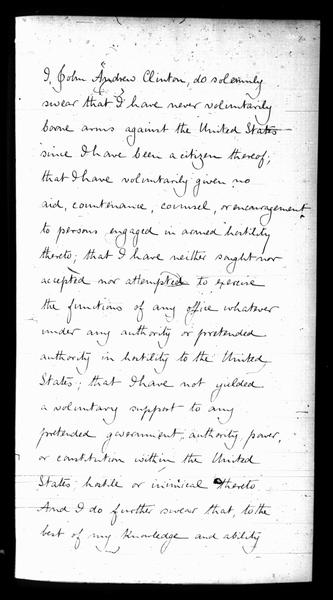 I, John Andrew Clinton, do solemnly
swear that I have never voluntarily
borne arms against the United States
since I have been a citizen thereof;
that I have voluntarily given no
aid, countenance, counsel, or encouragement
to persons engaged in armed hostility
thereto; that I have neither sought nor
accepted nor attempted to exercise
the functions of any office whatever
under any authority or pretended
authority in hostility to the United
States; that I have not yielded
a voluntary support to any
pretended government, authority, power,
or constitution within the United
States hostile or inimical thereto
And I do further swear that, to the
best of my knowledge and ability